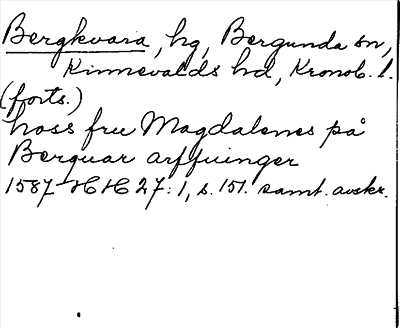 Bergkvara, hg, Bergunda sn,
Kinnevalds hd, Kronob. l.
(forts.)
hoss fru Magdalenes på
Berquar arffuinger
1587 HH 27: 1, s. 151. samt. avskr.